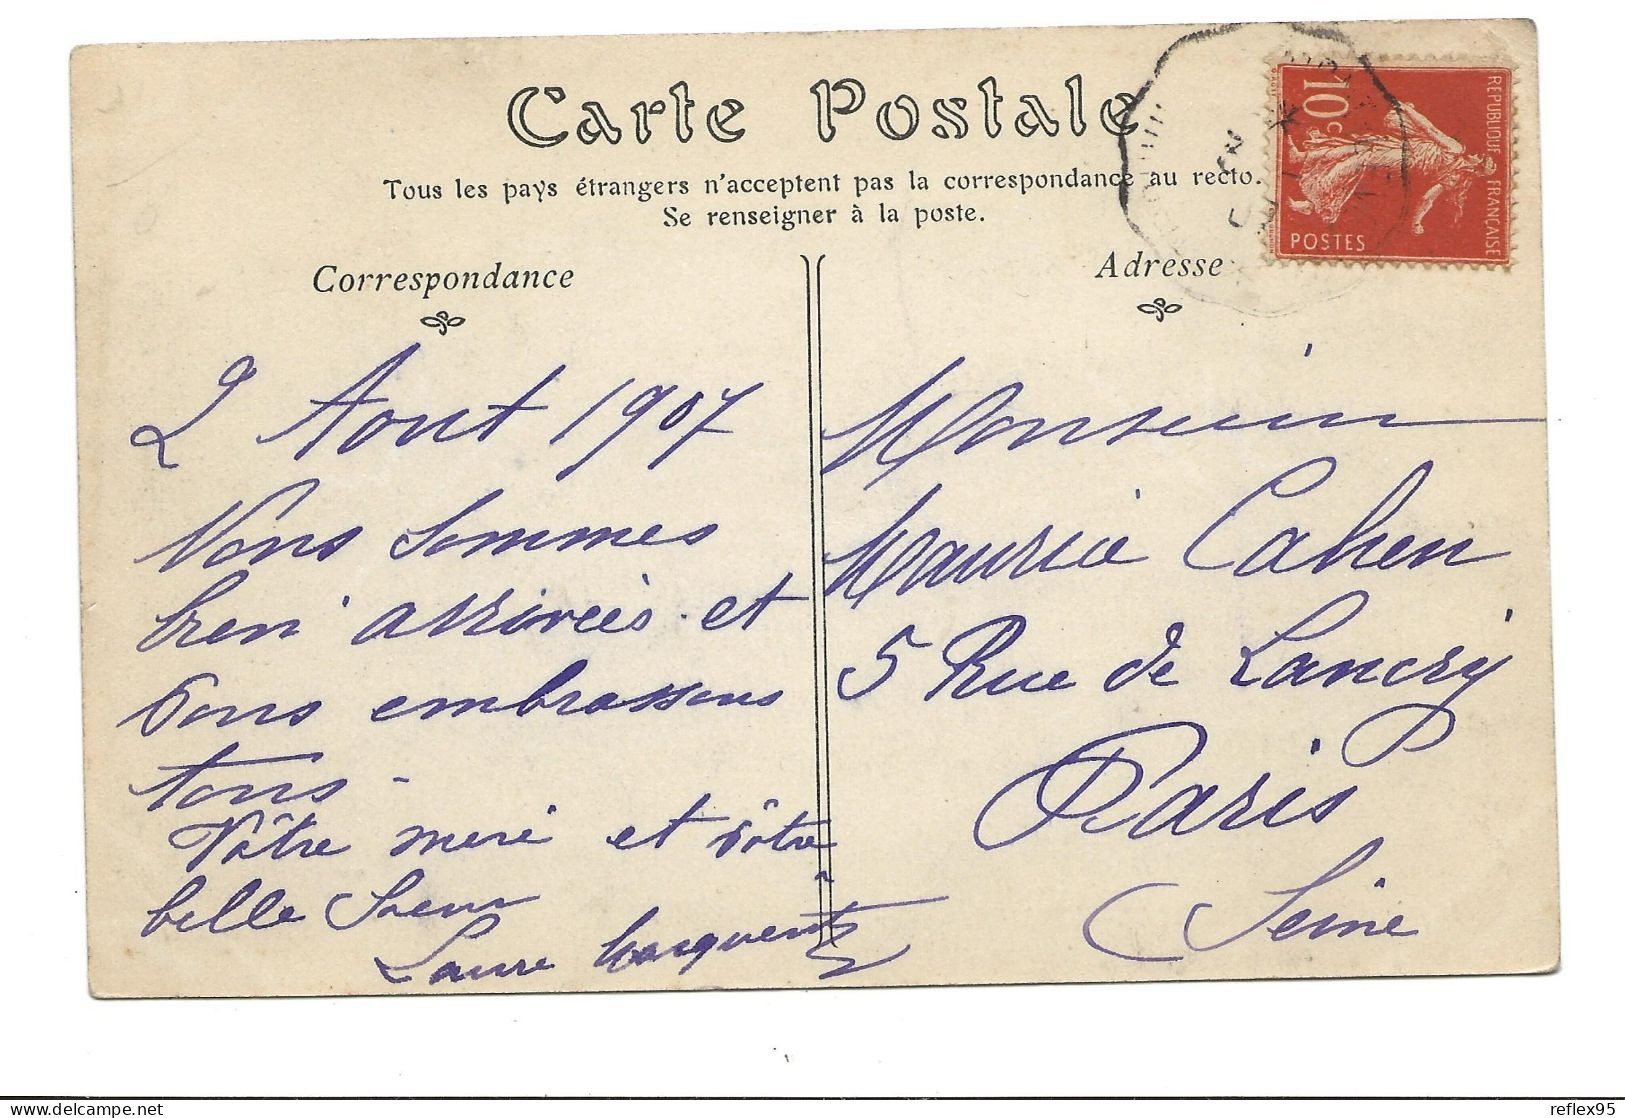 Carte Postale
Tous les pays étrangers n'acceptent pas la correspondance au recto.
Se renseigner à la poste.
Correspondance
Adresse
RÉPUBLIQUE FRANÇAISE
10 c
POSTES
2 Aout 1907
Nous sommes
bien arrivées et
vous embrassons
tous -
Vôtre mere et vôtre
belle Soeur
Laure
Monsieur
Maurice Cahen
5 Rue de Lancry
Paris
Seine
reflex95